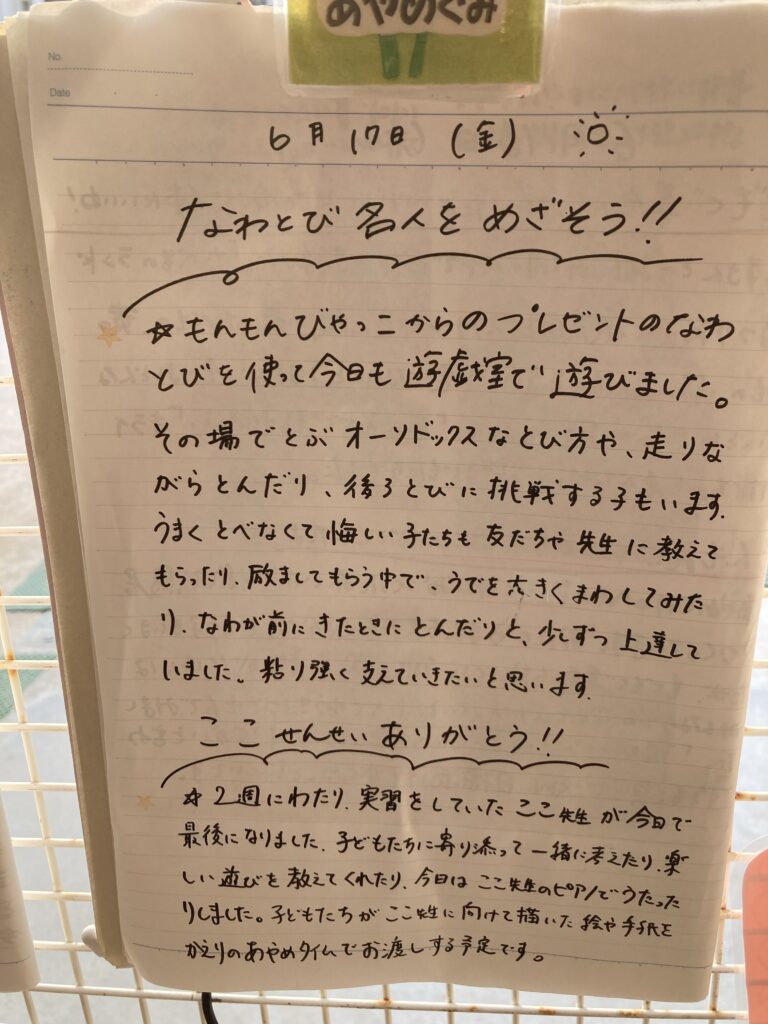 あやめぐみ
No.
Date
6月17日（金）
なわとび名人をめざそう!!
☆もんもんびゃっこからのプレゼントのなわ
とびを使って今日も遊戯室で遊びました。
その場でとぶオーソドックスなとび方や、走りな
がらとんだり、後ろとびに挑戦する子もいます。
うまくとべなくて悔しい子たちも友だちや先生に教えて
もらったり、励ましてもらう中で、うでを大きくまわしてみた
り、なわが前にきたときにとんだりと、少しずつ上達して
いました。粘り強く支えていきたいと思います。
ここせんせいありがとう!!
☆2週にわたり、実習をしていたここ先生が今日で
最後になりました。子どもたちに寄り添って一緒に考えたり、楽
しい遊びを教えてくれたり、今日はここ先生のピアノでうたった
りしました。子どもたちがここ先生に向けて描いた絵や手紙を
かえりのあやめタイムでお渡しする予定です。